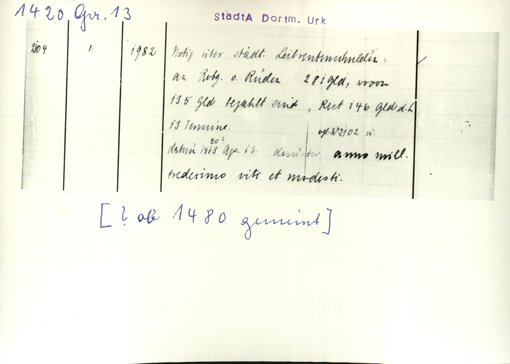 1420 Gr. 13
StadtA Dortm. Urk
204 1 1982 Notiz über städt. Leibrentenschulden:
an Robg. v. Rüden 281 Gld, wovon
135 Gld bezahlt sind, Rest 146 Gld d.h.
13 Termine.
datum 1413 20? Apr. 13. darunter anno mill.
tredesimo viti et modesti.
[? ob 1480 gemeint]